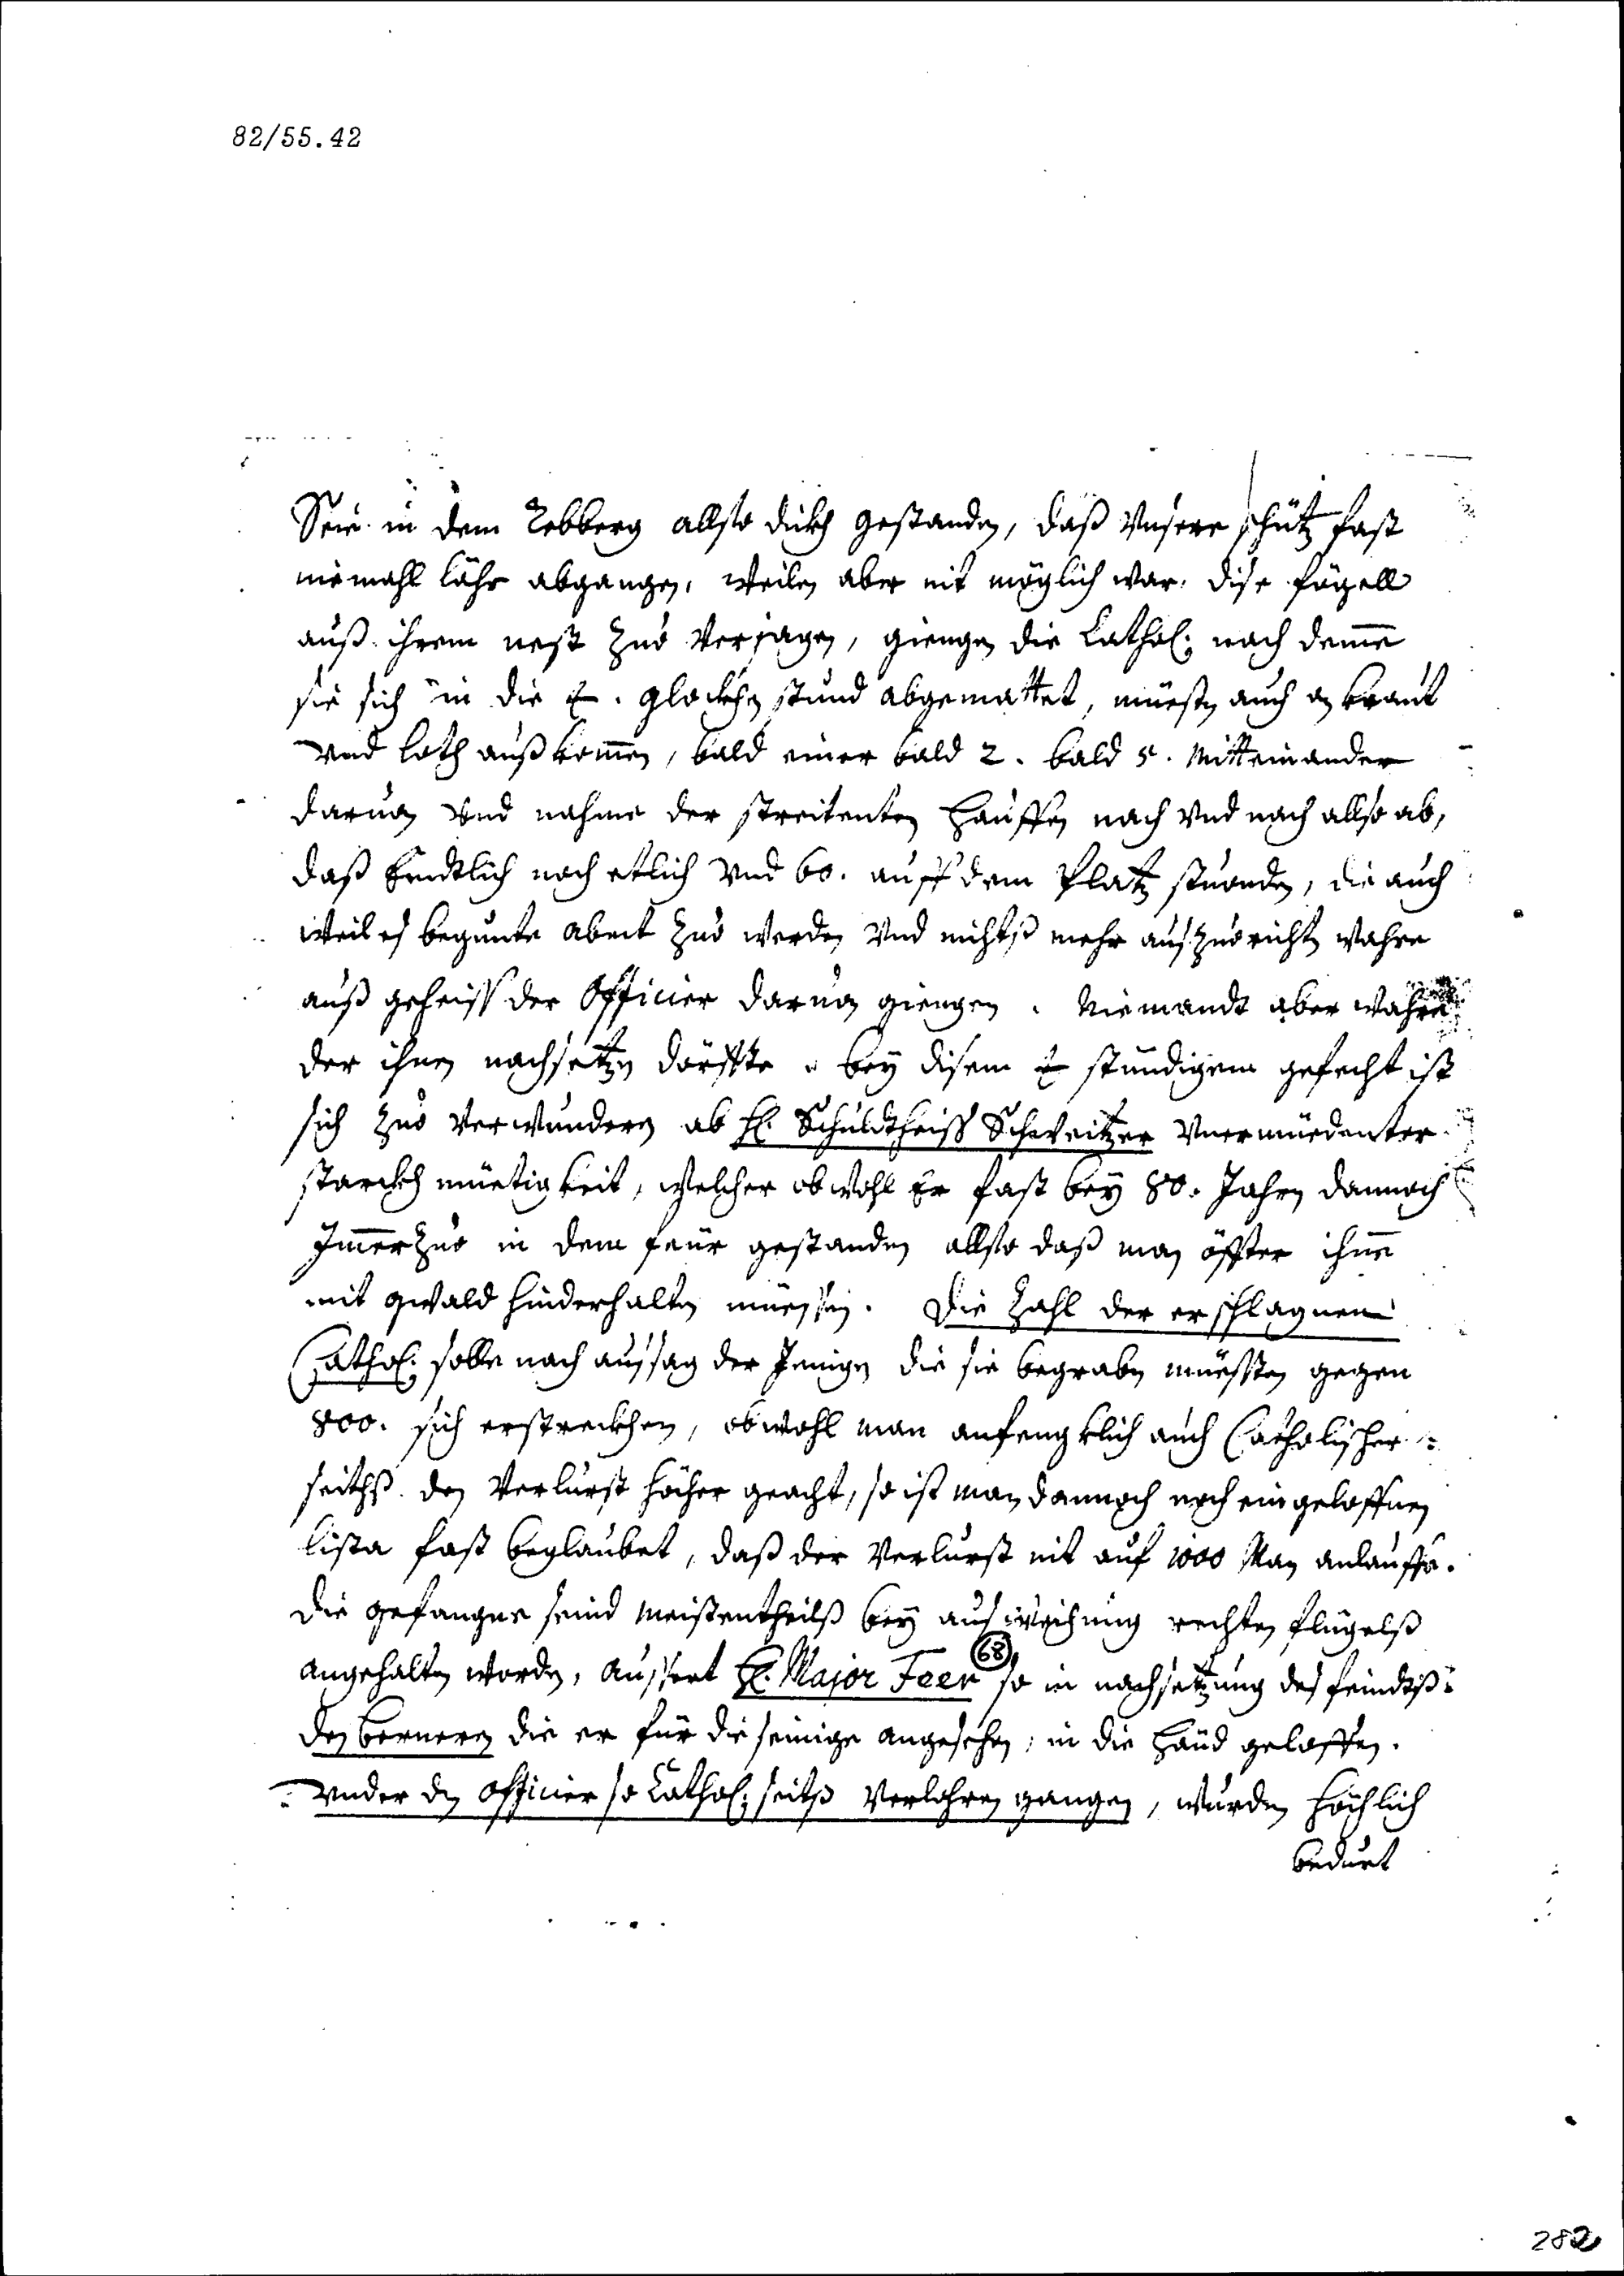 82/55.42
Seie in dem Rebberg allso dickh gestanden, daß Vnsere schütz fast
niemahl lähr abgangen, weilen aber nit möglich war, dise fögell
auß ihrem nest zuo Verjagen, giengen die Cathol: nach deme
sie sich in die glockhen stund abgemattet, müesten auch an kraut
vnd loth außkomen, bald einer bald 2. bald 5. Mitteinander
daruon vnd nahme der streitenten Hauffen nach vnd nach allso ab,
daß Endtlich noch etlich vnd 60. auff dem Platz stuonden, die auch
weil es begunte abent zuo werden vnd nichtß mehr auszuorichten wahre
auß geheiss der Officier daruon giengen. Niemandt aber wahre
der ihnen nachsetzen dörffte. bey disem stündigem gefecht ist
sich zuo verwundern ab H: Schuldtheiss Schweitzer Vnermüedenter
starckhmüetigkeit, welcher obwohl Er fast bey 80. Jahren dannoch
Jmerzuo in dem feür gestanden allso daß man öffter ihne
mit gwald hinderhalten müessen. Die Zahl der erschlagnen
Cathol: solle nach aussag der Jenigen die sie begraben müessten gegen
800. sich erstreckhen, obwohl man anfengklich auch Catholischer=
seithß den Verlurst höcher geacht, so ist man dannoch nach eingeloffnen
lista fast beglaubet, daß der Verlurst nit auf 1000 Man anlauffe.
Die gefangne seind meistentheilß bey ausweichung rechten flügelß
angehalten worden, aussert H: Major Feer (68) so in nachsetzung des feindtß
den Bernern die er für die seinige angesehen, in die Händ geloffen.
Vnder den Officier so Cathol: seitß Verlohren gangen, wurden höchlich
bedurt
282